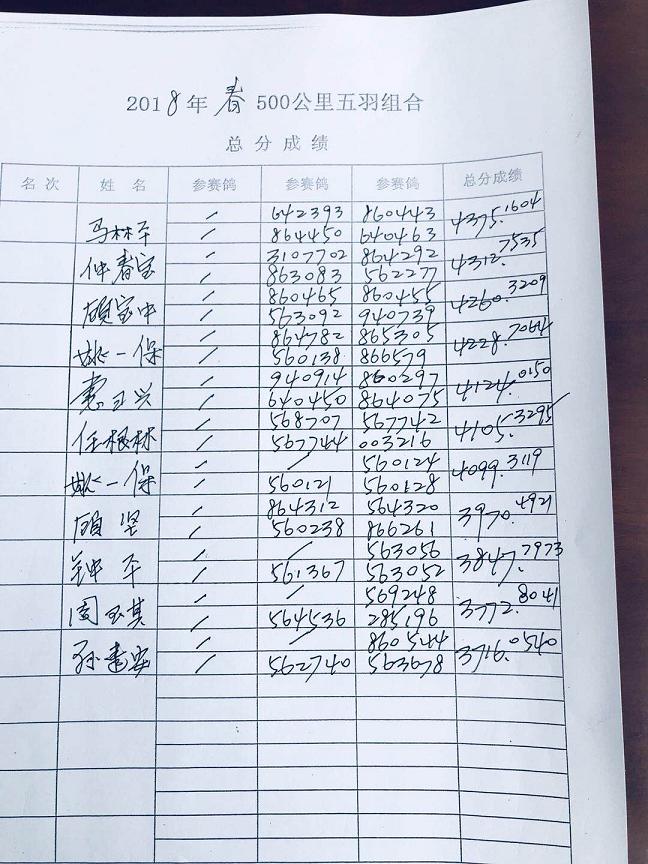 2018年 春 500公里五羽组合
总分成绩
名次 姓名 参赛鸽 参赛鸽 参赛鸽 总分成绩
/ 642393 860443
马林平 / 864450 640463 4375.1604
/ 3107702 864292
仲春宝 / 863083 562277 4312.7535
/ 860465 860455
顾宝中 / 563092 940739 4260.3209
/ 864782 865305
姚一保 / 560138 866579 4228.7064
/ 940914 860297
/ 640450 864075 4124.0150
/ 568707 567742
任根林 / 567744 003216 4105.3295
/ / 560124
姚一保 / 560121 560128 4099.3119
/ 864312 564320
顾坚 / 560238 866261 3970.4921
/ / 563056
钟平 / 561367 563052 3847.7973
/ / 569248
周玉其 / 564536 285196 3772.8041
/ / 860544
孙建安 / 562740 563678 3716.0540